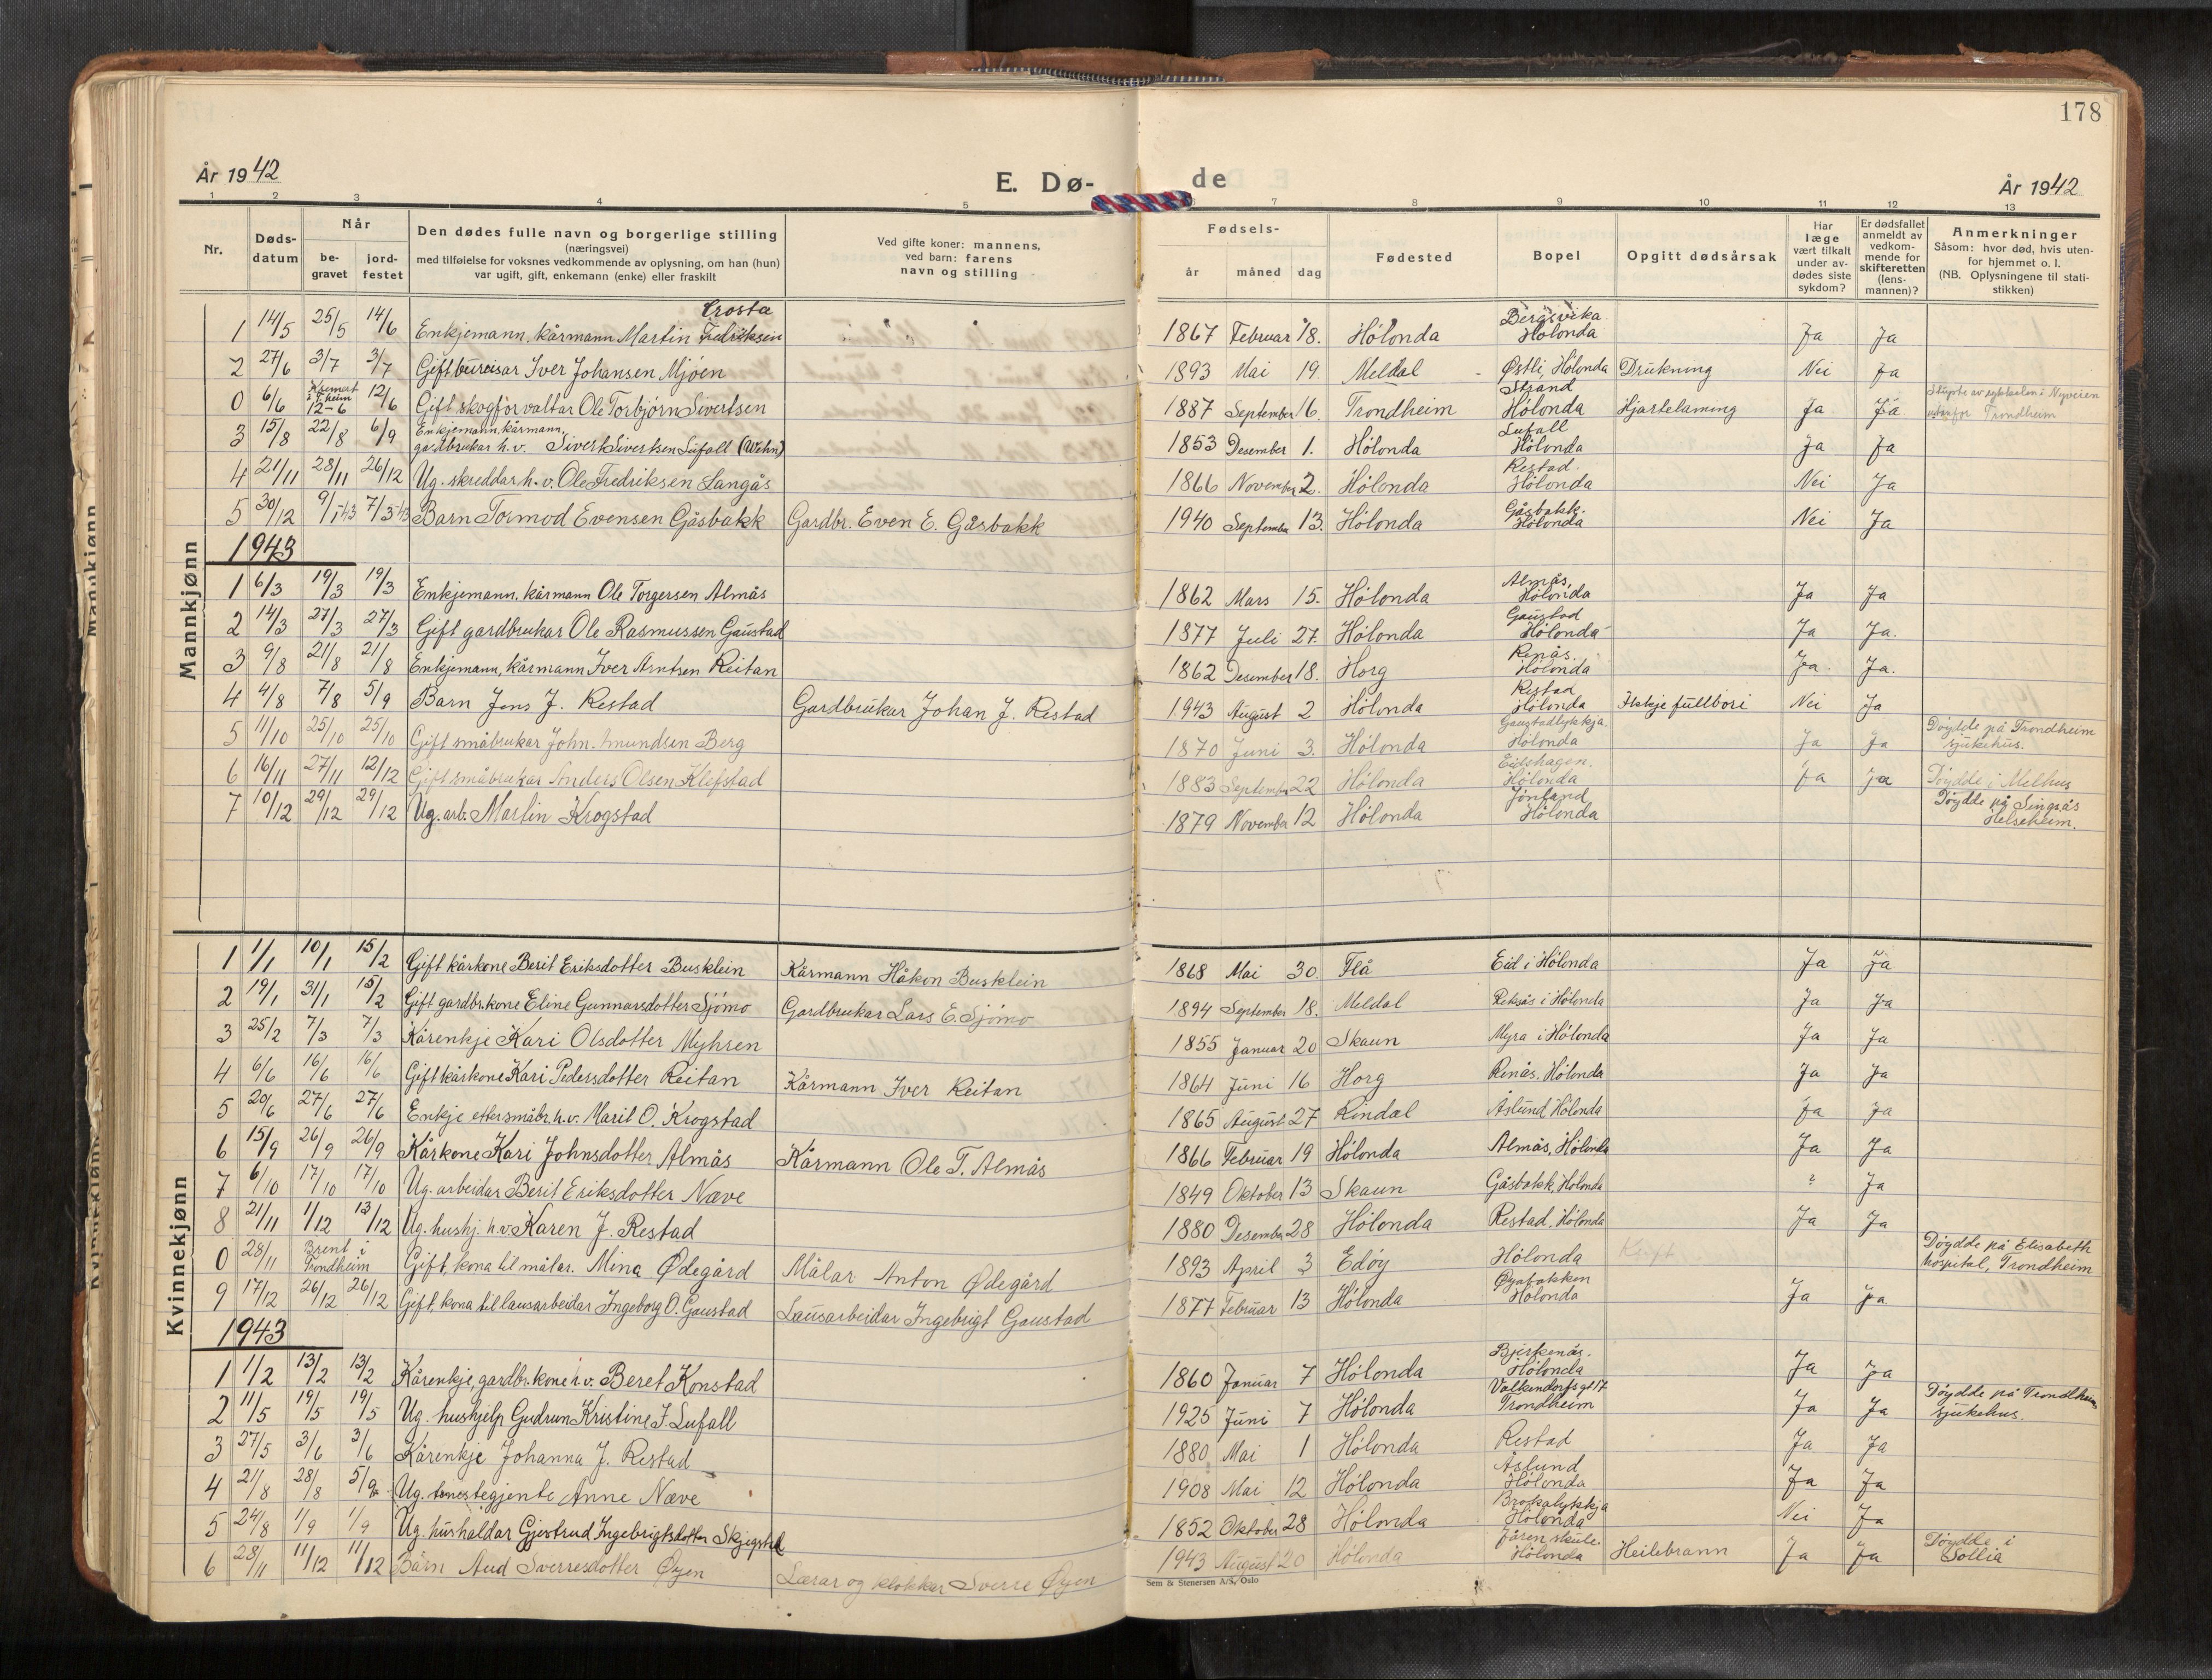 178
År 1942
E. Dø-
de
År 1942
1 2 3 4 5 6 7 8 9 10 11 12 13
Nr.
Døds-
datum
Når
be-
gravet
jord-
festet
Den dødes fulle navn og borgerlige stilling
(næringsvei)
med tilføielse for voksnes vedkommende av oplysning, om han (hun)
var ugift, gift, enkemann (enke) eller fraskilt
Ved gifte koner: mannens,
ved barn: farens
navn og stilling
Fødsels-
år måned dag
Fødested
Bopel
Opgitt dødsårsak
Har
læge
vært tilkalt
under av-
dødes siste
sykdom?
Er dødsfallet
anmeldt av
vedkom-
mende for
skifteretten
(lens-
mannen)?
Anmerkninger
Såsom: hvor død, hvis uten-
for hjemmet o. l.
(NB. Oplysningene til stati-
stikken)
Mannkjønn
1 14/5 25/5 14/6 Enkjemann, kårmann Martin Fredriksen Crosta 1867 Februar 18. Hölonda Bergsvika Hölonda Ja Ja
2 27/6 3/7 3/7 Gift bureisar Iver Johansen Mjöen 1893 Mai 19 Meldal Østli, Hölonda Drukning Nei Ja
0 6/6 Kremert i Theim 12-6 12/6 Gift skogforvaltar Ole Torbjörn Sivertsen 1887 September 16. Trondheim Strand Hölonda Hjartelaming Ja Ja Nyveien utanfor Trondheim
3 15/8 22/8 6/9 Enkjemann, kårmann, gardbrukar h.v. Sivert Sivertsen Lufall (Wehn) 1853 Desember 1. Hölonda Lufall Hölonda Ja Ja
4 21/11 28/11 26/12 Ug. skreddar h.v. Ole Fredriksen Langås 1866 November 2. Hölonda Restad Hölonda Nei Ja
5 30/12 9/1 43 7/3 43 Barn Tormod Evensen Gåsbakk Gardbr. Even E. Gåsbakk 1940 September 13. Hölonda Gåsbakk. Hölonda Nei Ja
1943
1 6/3 19/3 19/3 Enkjemann, kårmann Ole Torgersen Almås 1862 Mars 15. Hölonda Almås, Hölonda Ja Ja
2 14/3 27/3 27/3 Gift gardbrukar Ole Rasmussen Gaustad 1877 Juli 27. Hölonda Gaustad Hölonda Ja Ja.
3 9/8 21/8 21/8 Enkjemann, kårmann Iver Arntsen Reitan 1862 Desember 18. Horg Renås. Hölonda Ja. Ja.
4 4/8 7/8 5/9 Barn Jens J. Restad Gardbrukar Johan J. Restad 1943 August 2 Hölonda Restad Hölonda Ikkje fullbori Nei Ja
5 11/10 25/10 25/10 Gift småbrukar John Amundsen Berg 1870 Juni 3. Hölonda Gaustadlykkja. Hölonda Ja Ja Döydde på Trondheim sjukehus.
6 16/11 27/11 12/12 Gift småbrukar Anders Olsen Klefstad 1883 September 22 Hölonda Eidshagen. Hölonda Ja Ja Döydde i Melhus
7 10/12 29/12 29/12 Ug. arb. Martin Krogstad 1879 November 12 Hölonda Hölonda Döydde på Singsås Helseheim.
Kvinnekjønn
1 1/1 10/1 15/2 Gift kårkone Berit Eriksdotter Busklein Kårmann Håkon Busklein 1868 Mai 30 Flå Eid i Hölonda Ja Ja
2 19/1 31/1 15/2 Gift gardbr.kone Eline Gunnarsdotter Sjömo Gardbrukar Lars E. Sjömo 1894 September 18. Meldal i Hölonda Ja Ja
3 25/2 7/3 7/3 Kårenkje Kari Olsdotter Myhren 1855 Januar 20 Skaun Myra i Hölonda Ja Ja
4 6/6 16/6 16/6 Gift kårkone Kari Pedersdotter Reitan Kårmann Iver Reitan 1864 Juni 16 Horg Renås. Hölonda Ja Ja
5 20/6 27/6 27/6 Enkje etter småbr. h.v. Marit O. Krogstad 1865 August 27 Rindal Åslund Hölonda Ja Ja
6 15/9 26/9 26/9 Kårkone Kari Johnsdotter Almås Kårmann Ole T. Almås 1866 Februar 19 Hölonda Almås, Hölonda Ja Ja
7 6/10 17/10 17/10 Ug. arbeidar Berit Eriksdotter Næve 1849 Oktober 13 Skaun Gåsbakk, Hölonda ? Ja
8 21/11 1/12 13/12 Ug. hushj. h.v. Karen J. Restad 1880 Desember 28 Hölonda Restad, Hölonda Ja Ja
0 28/11 Brent i Trondheim Gift, kona til målar. Mina Ødegård Målar Anton Ødegård 1893 April 3 Edöy Hölonda Kreft Döydde på Elisabeth hospital, Trondheim
9 17/12 26/12 26/12 Gift, kona til lausarbeidar Ingeborg O. Gaustad Lausarbeidar Ingebrigt Gaustad 1877 Februar 13 Hölonda Øyabakken Hölonda Ja Ja
1943
1 1/2 13/2 13/2 Kårenkje, gardbr.kone h.v. Beret Konstad 1860 Januar 7 Hölonda Bjerkenås. Hölonda Ja Ja
2 11/5 19/5 19/5 Ug. hushjelp Gudrun Kristine J. Lufall 1925 Juni 7 Hölonda Valkendorfsgt 17 Trondheim Ja Ja Döydde på Trondheim sjukehus.
3 27/5 3/6 3/6 Kårenkje Johanna J. Restad 1880 Mai 1 Hölonda Restad Ja Ja
4 21/8 28/8 5/9 Ug. tenestegjente Anne Næve 1908 Mai 12 Hölonda Åslund Hölonda Ja Ja
5 24/8 1/9 1/9 Ug. hushaldar Gjertrud Ingebrigtsdotter Skjegstad 1852 Oktober 28 Hölonda Hölonda Nei Ja
6 28/11 11/12 11/12 Barn Aud Sverresdotter Øyen Lærar og klokkar Sverre Øyen 1943 August 20 Hölonda Jåren skule. Hölonda Heilebrann Ja Ja Döydde i Sollia
Sem & Stenersen A/S, Oslo